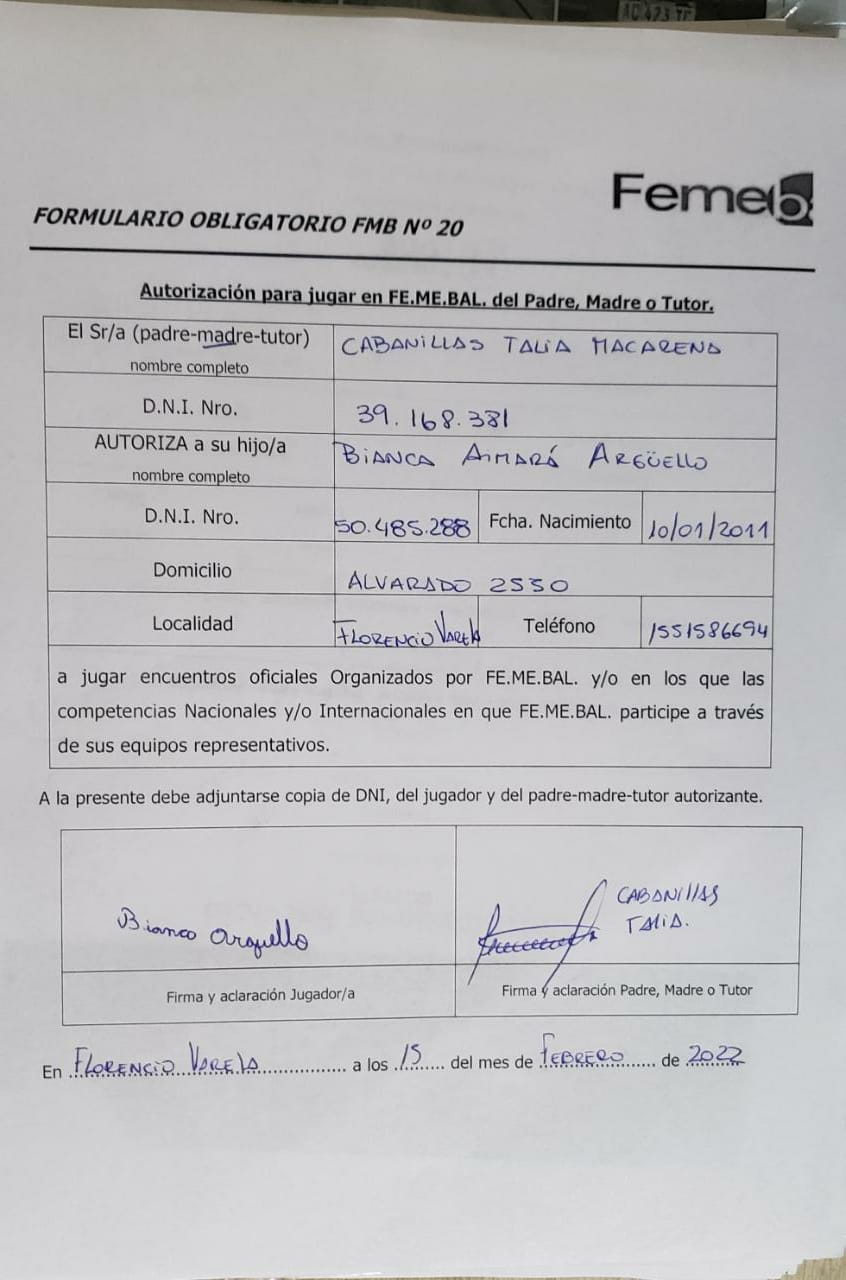 AC 473 TC
Femeb
FORMULARIO OBLIGATORIO FMB Nº 20
Autorización para jugar en FE.ME.BAL. del Padre, Madre o Tutor.
El Sr/a (padre-madre-tutor) CABANILLAS TALIA MACARENA
nombre completo
D.N.I. Nro. 39.168.381
AUTORIZA a su hijo/a BIANCA AIMARÁ ARGÜELLO
nombre completo
D.N.I. Nro. 50.485.288 Fcha. Nacimiento 10/01/2011
Domicilio ALVARADO 2550
Localidad FLORENCIO VARELA Teléfono 1551586694
a jugar encuentros oficiales Organizados por FE.ME.BAL. y/o en los que las
competencias Nacionales y/o Internacionales en que FE.ME.BAL. participe a través
de sus equipos representativos.
A la presente debe adjuntarse copia de DNI, del jugador y del padre-madre-tutor autorizante.
CABANILLAS
TALIA.
Bianca Arguello
Firma y aclaración Jugador/a Firma y aclaración Padre, Madre o Tutor
En FLORENCIO VARELA a los 15 del mes de FEBRERO de 2022